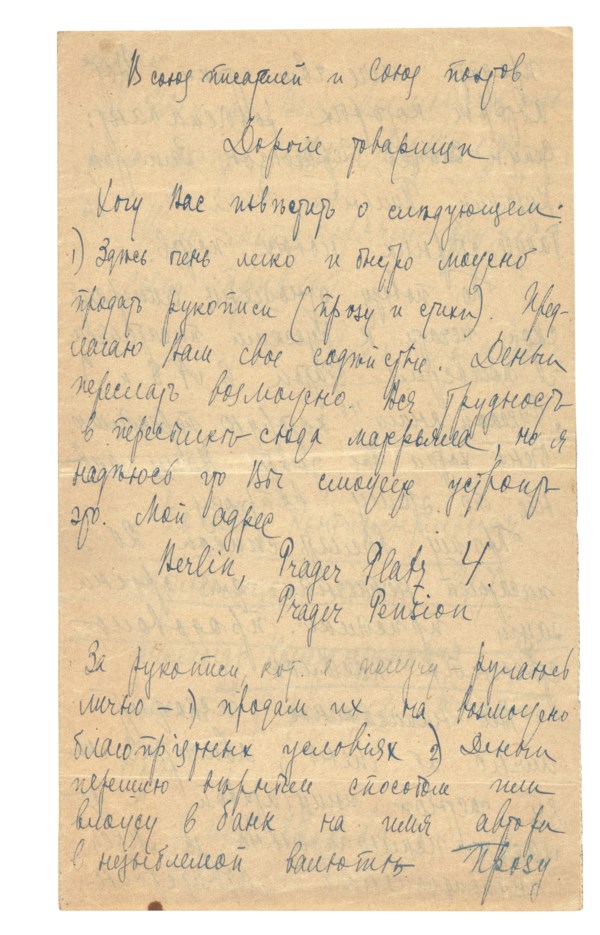 В союз писателей и Союз поэтов
Дорогие товарищи
Хочу Вас повѣстить о слѣдующем:
1) Здѣсь очень легко и быстро можно
продать рукописи (прозу и стихи). Пред-
лагаю Вам свое содѣйствие. Деньги
переслать возможно. Вся трудность
в пересылкѣ сюда матерьяла, но я
надѣюсь что Вы сможете устроить
это. Мой адрес
Berlin, Prager Platz 4.
Prager Pension
За рукописи, кот. я получу – ручаюсь
лично – 1) продам их на возможно
благоприятных условіях 2) Деньги
перешлю вѣрным способом или
вложу в банк на имя автора
в незыблемой валютѣ Прозу